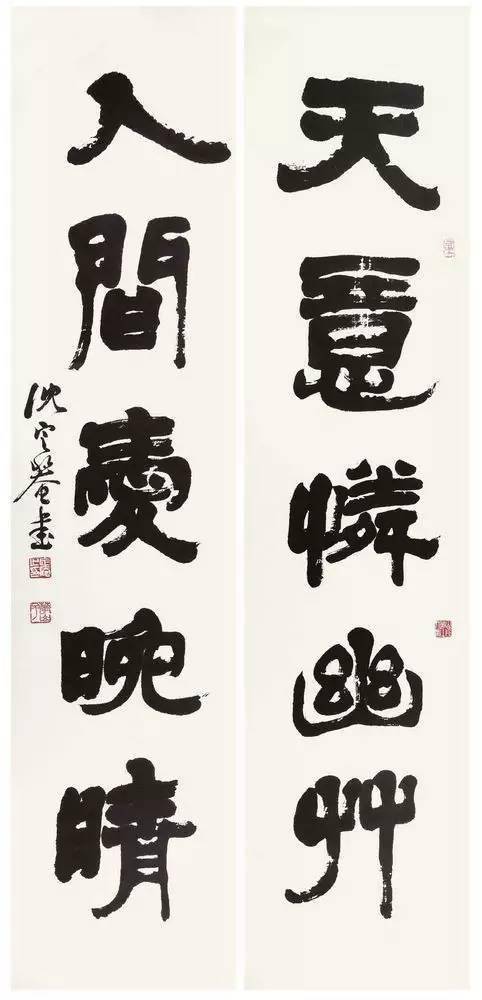 天意憐幽艸
人間愛晚晴
沈定盦書